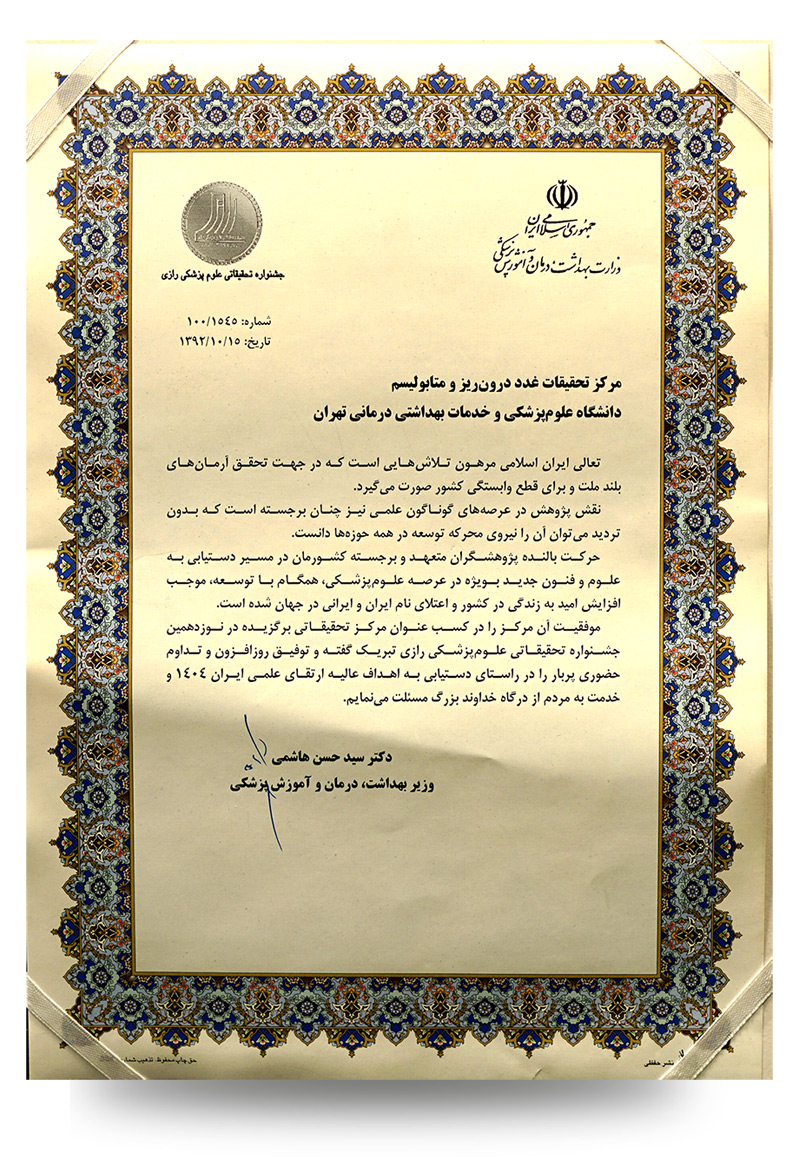 جمهوری اسلامی ایران
وزارت بهداشت، درمان و آموزش پزشکی
جشنواره تحقیقاتی علوم پزشکی رازی
شماره: ۱۰۰/۱۵٤۵
تاریخ: ۱۳۹۲/۱۰/۱۵
مرکز تحقیقات غدد درون‌ریز و متابولیسم
دانشگاه علوم‌پزشکی و خدمات بهداشتی درمانی تهران
تعالی ایران اسلامی مرهون تلاش‌هایی است که در جهت تحقق آرمان‌های
بلند ملت و برای قطع وابستگی کشور صورت می‌گیرد.
نقش پژوهش در عرصه‌های گوناگون علمی نیز چنان برجسته است که بدون
تردید می‌توان آن را نیروی محرکه توسعه در همه حوزه‌ها دانست.
حرکت بالنده پژوهشگران متعهد و برجسته کشورمان در مسیر دستیابی به
علوم و فنون جدید بویژه در عرصه علوم‌پزشکی، همگام با توسعه، موجب
افزایش امید به زندگی در کشور و اعتلای نام ایران و ایرانی در جهان شده است.
موفقیت آن مرکز را در کسب عنوان مرکز تحقیقاتی برگزیده در نوزدهمین
جشنواره تحقیقاتی علوم‌پزشکی رازی تبریک گفته و توفیق روزافزون و تداوم
حضوری پربار را در راستای دستیابی به اهداف عالیه ارتقای علمی ایران ۱٤۰٤ و
خدمت به مردم از درگاه خداوند بزرگ مسئلت می‌نمایم.
دکتر سید حسن هاشمی
وزیر بهداشت، درمان و آموزش پزشکی
نشر حفظی
حق چاپ محفوظ. تذهیب